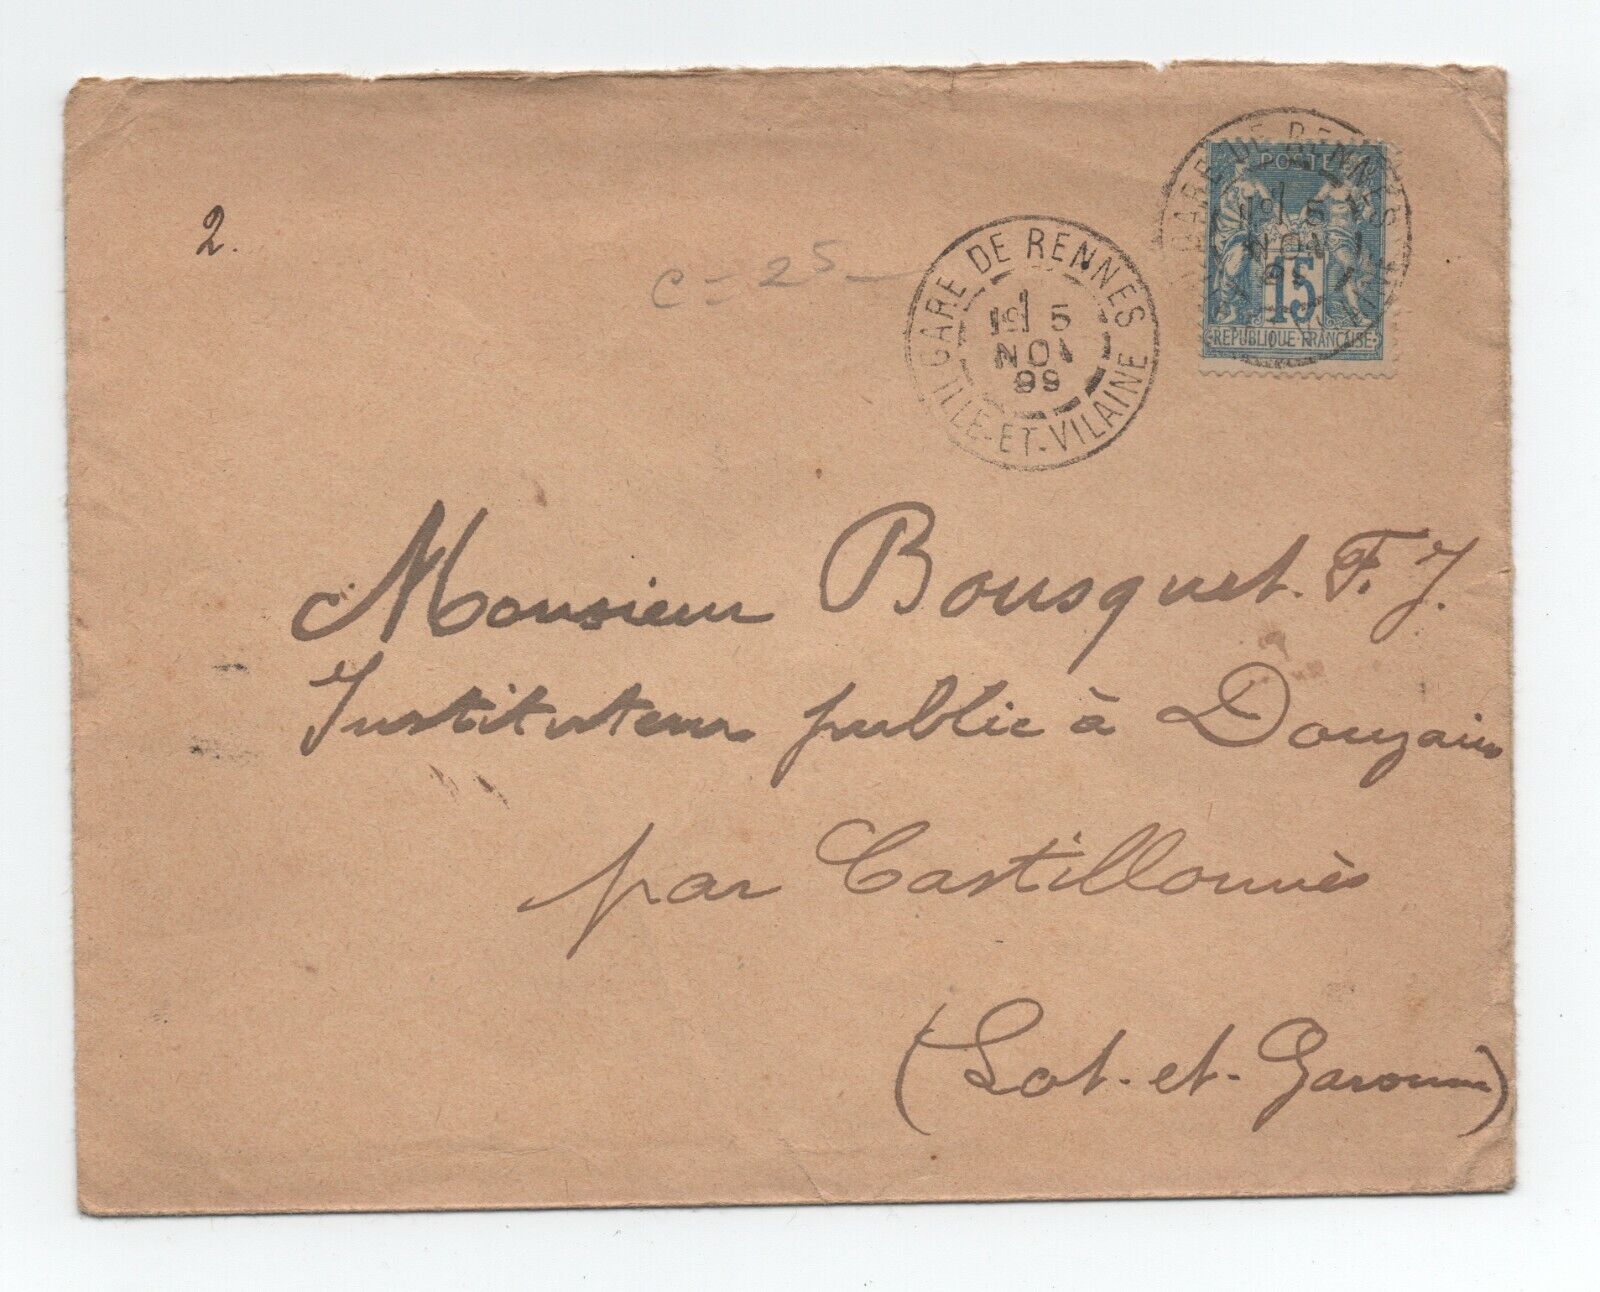 2.
c = 25
GARE DE RENNES
1E 5
NOV
99
ILLE-ET-VILAINE
GARE DE RENNES
1E 5
NOV
POSTE
15
REPUBLIQUE FRANCAISE
Monsieur Bousquet. F. J.
Instituteur public à Douzains
par Castillonnès
(Lot-et-Garonne)